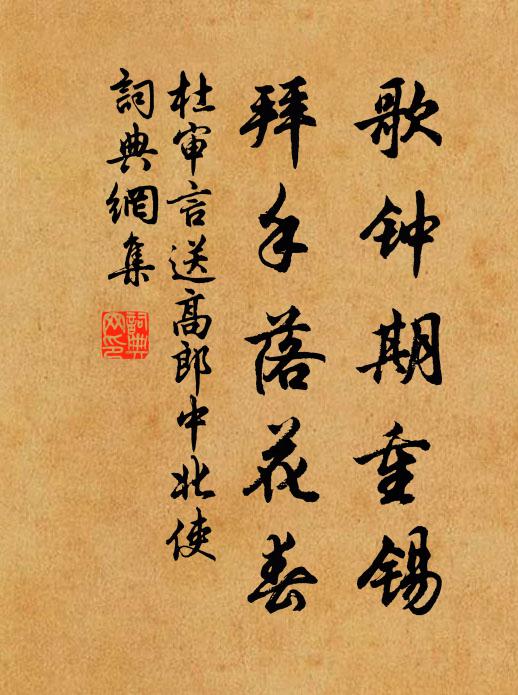 歌钟期重锡
拜手落花春
杜审言送高郎中北使
詞典網集
詞典
网印